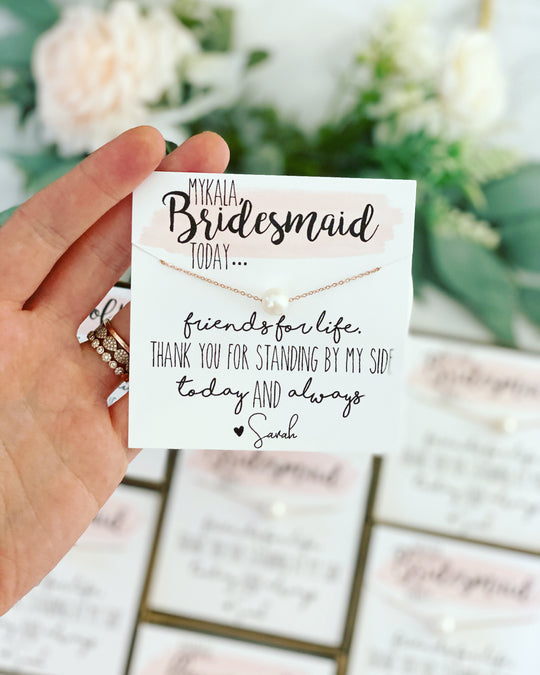 MYKALA,
Bridesmaid
TODAY...
friends for life.
THANK YOU FOR STANDING BY MY SIDE
today AND always
♥ Sarah
Bridesmaid
Bridesmaid
Bridesmaid